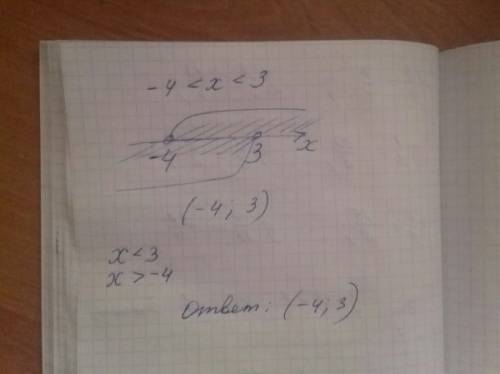 -4 < x < 3
-4 3 x
(-4; 3)
x < 3
x > -4
Ответ: (-4; 3)